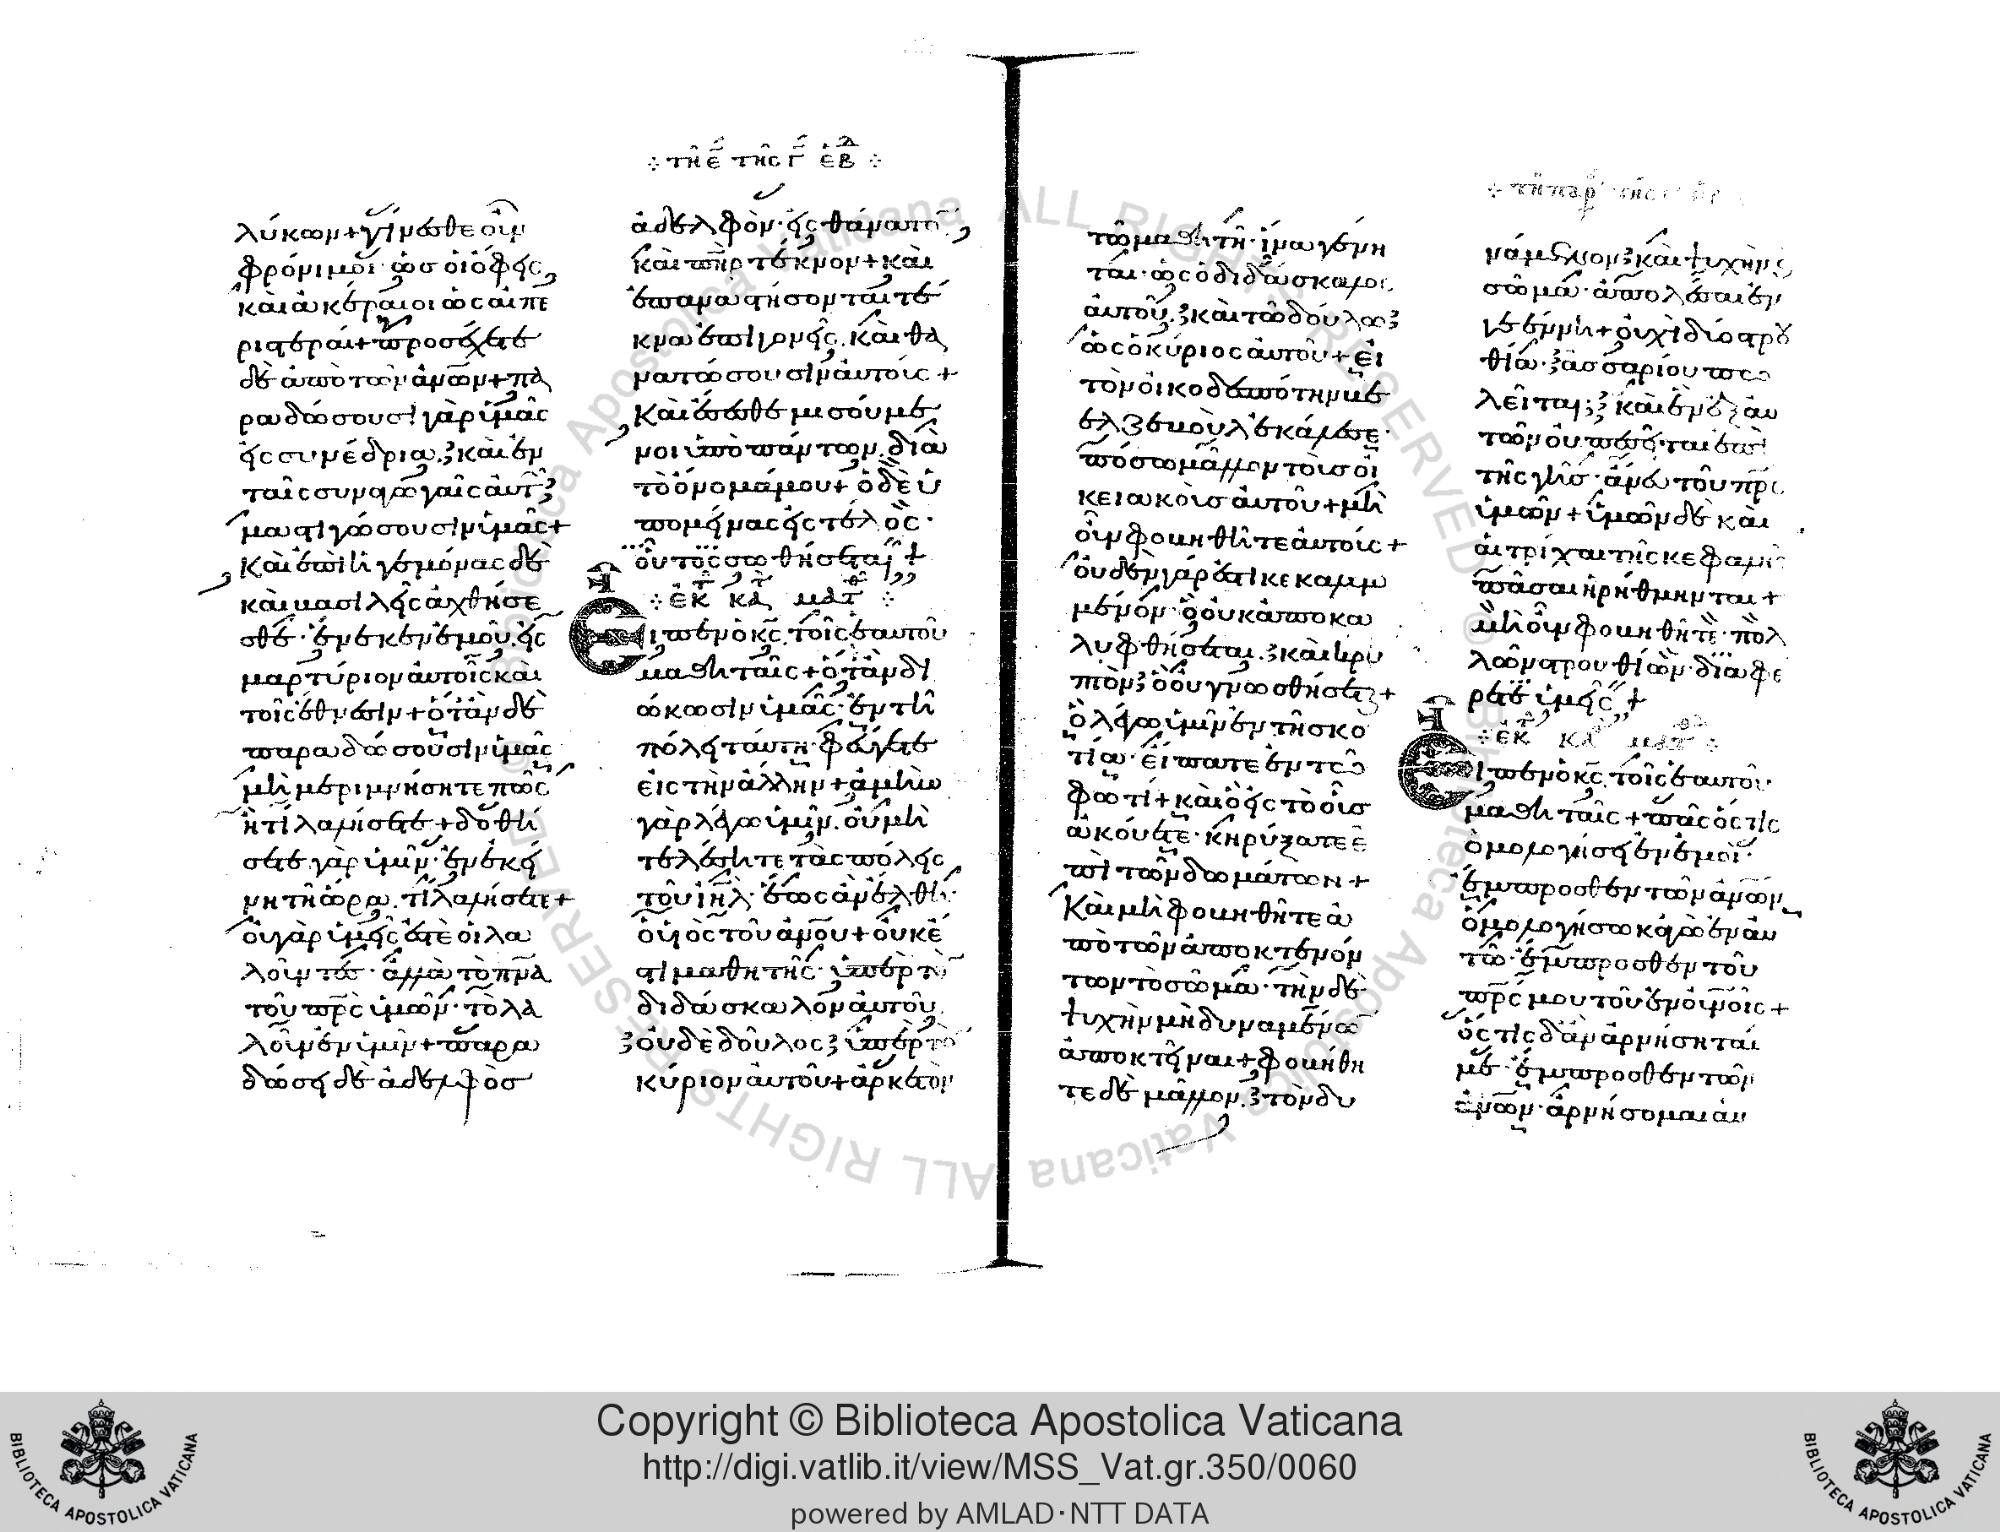 λύκων + γίνεσθε οὖν
φρόνιμοι · ὡς οἱ ὄφεις
καὶ ἀκέραιοι ὡς αἱ πε
ριστεραί + προσέχετε
δὲ ἀπὸ τῶν ἀνῶν + πα
ραδώσουσι γὰρ ὑμᾶς
εἰς συνέδρια . καὶ ἐν
ταῖς συναγωγαῖς αὐτ
μαστιγώσουσιν ὑμᾶς +
Καὶ ἐπὶ ἡγεμόνας δὲ
καὶ βασιλεῖς ἀχθήσε
σθε · ἕνεκεν ἐμοῦ . εἰς
μαρτύριον αὐτοῖς καὶ
τοῖς ἔθνεσιν + ὅταν δὲ
παραδώσουσιν ὑμᾶς
μὴ μεριμνήσητε πῶς
ἢ τί λαλήσετε + δοθή
σεται γὰρ ὑμῖν · ἐν ἐκεί
νῃ τῇ ὥρα . τί λαλήσετε +
Οὐ γὰρ ὑμεῖς ἐστὲ οἱ λα
λοῦντες · ἀλλὰ τὸ πνα
τοῦ πρς ὑμῶν · τὸ λα
λοῦν ἐν ὑμῖν + παρα
δώσει δὲ ἀδελφὸς
⁘ τῆ ε τῆς γ ἑβδ ⁘
ἀδελφὸν · εἰς θάνατον
καὶ πηρ τέκνον + καὶ
ἐπαναστήσονται τέ
κνα ἐπὶ γονεῖς . καὶ θα
νατώσουσιν αὐτούς +
Καὶ ἔσεσθε μισούμε
νοι ὑπὸ πάντων . διὰ
τὸ ὄνομά μου + ὁ δὲ ὑ
πομείνας εἰς τέλος ·
οὗτος σωθήσεται +
⁘ ἐκ τ κατ ματθ ⁘
Εἶπεν ὁ κς . τοῖς ἑαυτοῦ
μαθηταῖς + ὅταν δι
ώκωσιν ὑμᾶς · ἐν τῆ
πόλει ταύτη · φεύγετε
εἰς τὴν ἄλλην + ἀμὴν
γὰρ λέγω ὑμῖν . οὐ μὴ
τελέσητε τὰς πόλεις
τοῦ ιηλ · ἕως ἂν ἔλθῃ
ὁ υἱὸς τοῦ ἀνου + οὐκ ἔ
στι μαθητὴς · ὑπὲρ τὸν
διδάσκαλον αὐτοῦ
οὐδὲ δοῦλος ὑπὲρ τὸν
κύριον αὐτοῦ + ἀρκετὸν
⁘ τῆ παρ τῆς
τῶ μαθητῆ · ἵνα γένη
ται · ὡς ὁ διδάσκαλος
αὐτοῦ . καὶ τῶ δούλω
ὡς ὁ κύριος αὐτοῦ + εἰ
τὸν οἰκοδεσπότην βε
ελζεβοὺλ ἐκάλεσε ·
πόσω μᾶλλον τοὺς οἰ
κειακοὺς αὐτοῦ + μὴ
οὖν φοβηθῆτε αὐτούς +
Οὐδὲν γάρ ἐστι κεκαλυμ
μένον · ὃ οὐκ ἀποκα
λυφθήσεται . καὶ κρυ
πτὸν ὃ οὐ γνωσθήσεται +
Ὃ λέγω ὑμῖν ἐν τῇ σκο
τία · εἴπατε ἐν τῶ
φωτί + καὶ ὃ εἰς τὸ οὖς
ἀκούετε · κηρύξατε ἐ
πὶ τῶν δωμάτων +
Καὶ μὴ φοβηθῆτε ἀ
πὸ τῶν ἀποκτενόν
των τὸ σῶμα · τὴν δὲ
ψυχὴν μὴ δυναμένων
ἀποκτεῖναι + φοβήθη
τε δὲ μᾶλλον . τὸν δυ
νάμενον καὶ ψυχὴν
σῶμα · ἀπολέσαι ἐν
γεέννη + οὐχὶ δύο στρου
θία · ἀσσαρίου πω
λεῖται ; καὶ ἓν ἐξ αυ
τῶν οὐ πεσεῖται ἐπὶ
τῆς γῆς · ἄνευ τοῦ πρς
ὑμῶν + ὑμῶν δὲ καὶ
αἱ τρίχαι τῆς κεφαλῆς
πᾶσαι ἠριθμηνται +
Μὴ οὖν φοβηθῆτε · πολ
λῶν στρουθίων · διαφέ
ρετε ὑμεῖς +
⁘ ἐκ τ κατ ματθ ⁘
Εἶπεν ὁ κς . τοῖς ἑαυτοῦ
μαθηταῖς + πᾶς ὅστις
ὁμολογήσει ἐν ἐμοί ·
ἔμπροσθεν τῶν ἀνῶν
ὁμολογήσω κἀγὼ ἐν αυ
τῶ · ἔμπροσθεν τοῦ
πρς μου τοῦ ἐν οὐνοῖς +
Ὅστις δἂν ἀρνήσηταί
με · ἔμπροσθεν τῶν
ἀνων · ἀρνήσομαι αυ
Copyright © Biblioteca Apostolica Vaticana
http://digi.vatlib.it/view/MSS_Vat.gr.350/0060
powered by AMLAD·NTT DATA
BIBLIOTECA APOSTOLICA VATICANA
BIBLIOTECA APOSTOLICA VATICANA
© Biblioteca Apostolica Vaticana ALL RIGHTS RESERVED
© Biblioteca Apostolica Vaticana ALL RIGHTS RESERVED